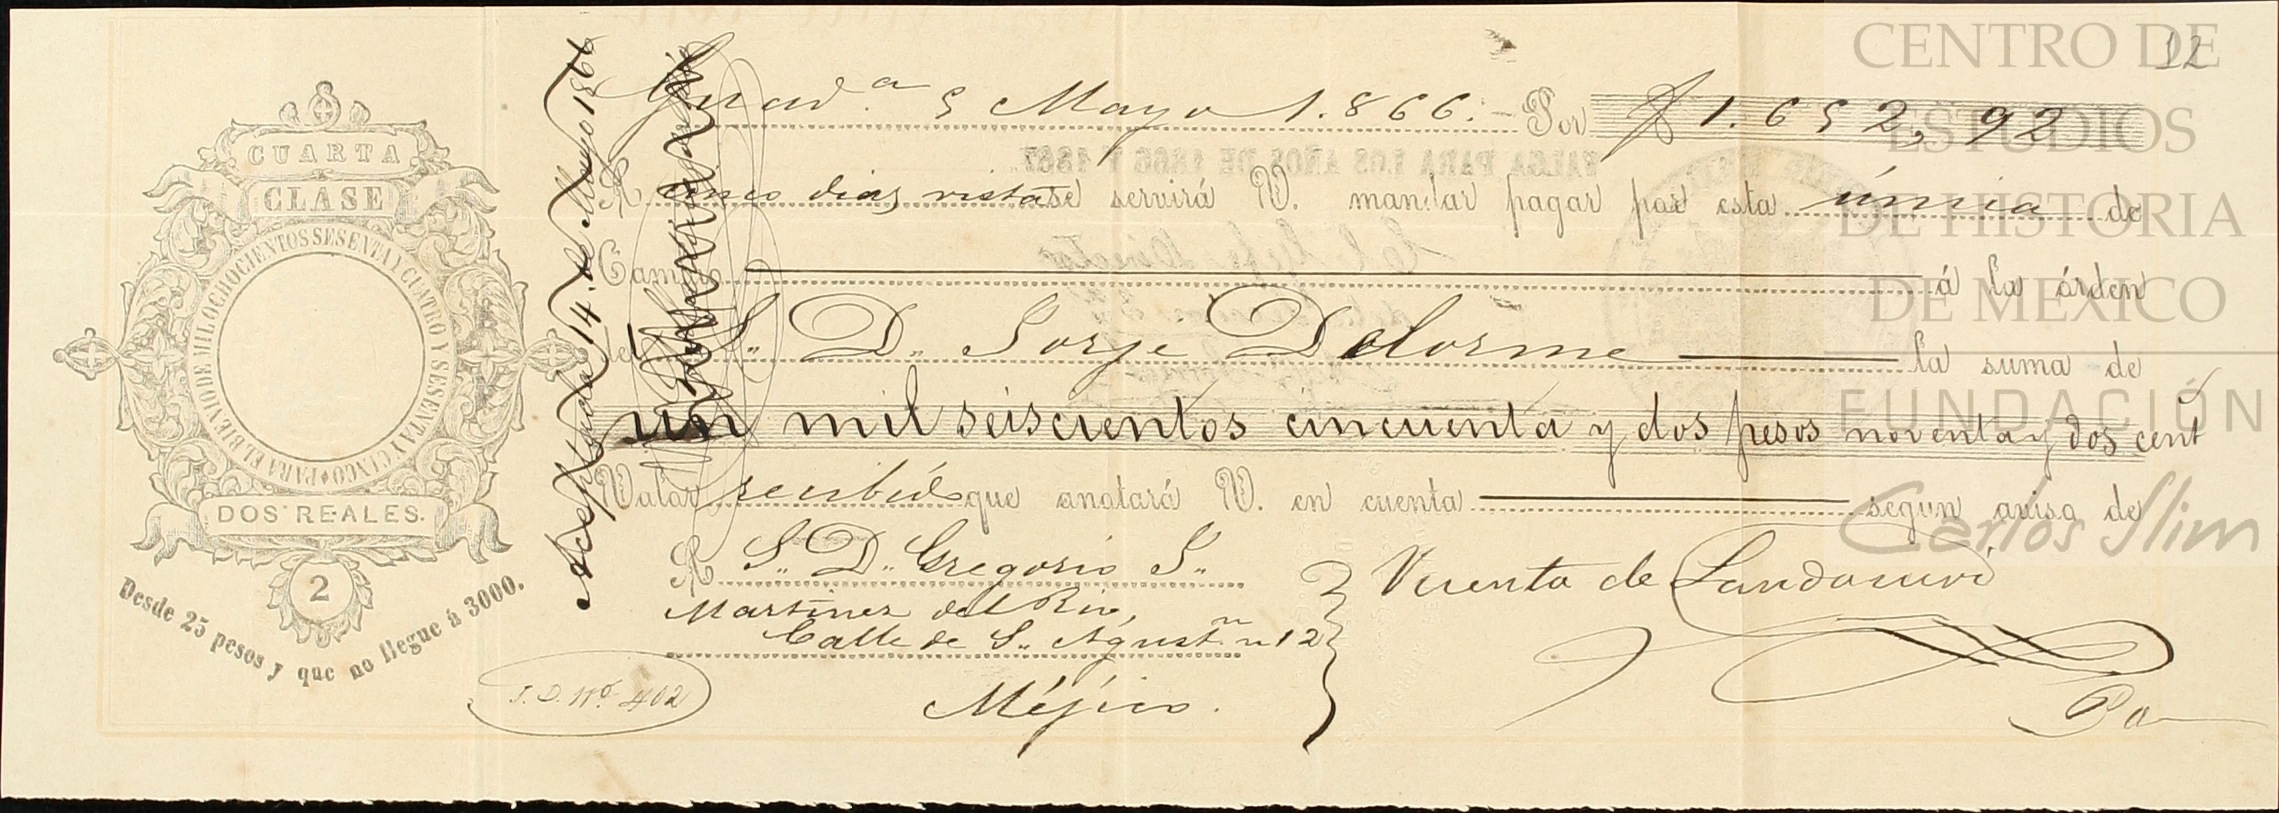 12
Guad.a 5 Mayo 1.866. Por $ 1.652,92
VALGA PARA LOS AÑOS DE 1866 Y 1867.
A cinco dias vista se servirá V. mandar pagar por esta única de
Cambio á la órden
del S. D. Jorje Delorme la suma de
un mil seiscientos cincuenta y dos pesos noventa y dos cent
Valor recibido que anotará V. en cuenta segun aviso de
A S. D. Gregorio J.
Martinez del Rio,
Calle de S. Agustn n 12
Méjico.
Vicenta de Landoucri
Pa
J. D. No. 402
Aceptada 14. de Mayo 1866
CUARTA
CLASE
PARA EL BIENIO DE MIL OCHOCIENTOS SESENTA Y CUATRO Y SESENTA Y CINCO
DOS REALES.
2
Desde 25 pesos y que no llegue á 3000.
CENTRO DE
ESTUDIOS
DE HISTORIA
DE MÉXICO
FUNDACIÓN
Carlos Slim